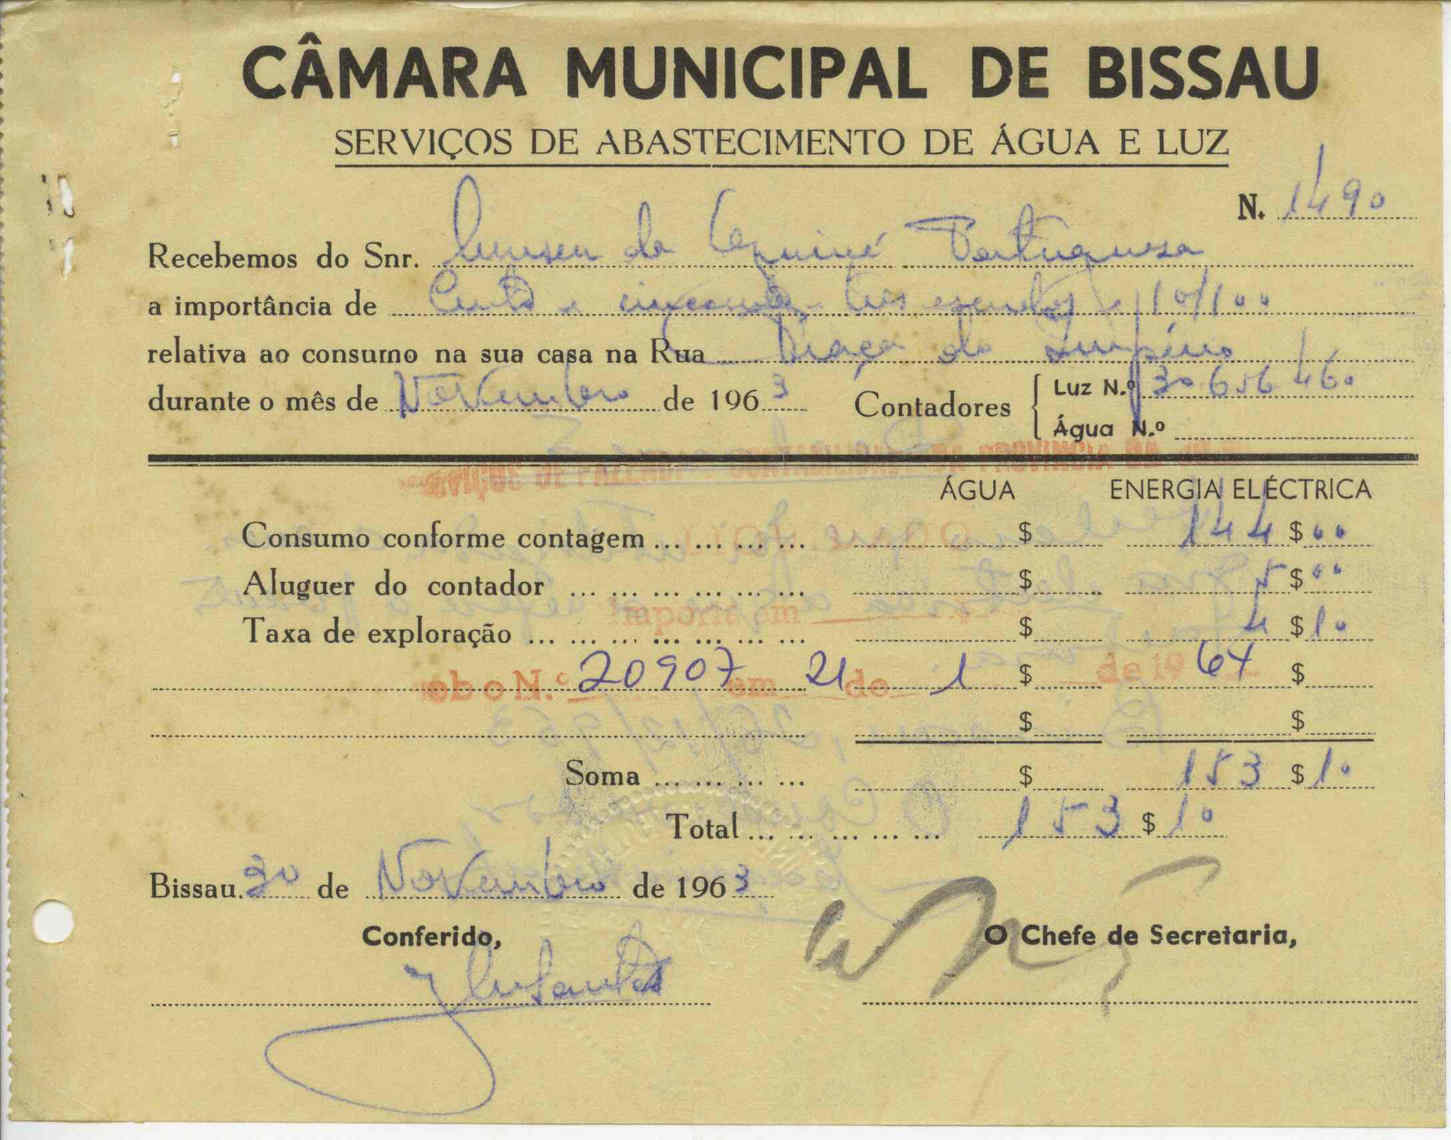 CÂMARA MUNICIPAL DE BISSAU
SERVIÇOS DE ABASTECIMENTO DE ÁGUA E LUZ
N. 1490
Recebemos do Snr. Museu da Guiné Portuguesa
a importância de Cento e cincoenta e três escudos e 10/100
relativa ao consumo na sua casa na Rua Praça do Império
durante o mês de Novembro de 1963 Contadores Luz N.º 30656460
Água N.º
SERVIÇOS DE FAZENDA E CONTABILIDADE DA PROVINCIA DA
ÁGUA ENERGIA ELÉCTRICA
Consumo conforme contagem ... ... ... ... $ 144 $ 00
Aluguer do contador ... ... ... ... ... $ 5 $ 00
Importe em
Taxa de exploração ... ... ... ... ... ... $ 4 $ 10
ob o N.º 20907 em 21 de 1 de 1964 $ $
$ $
Soma ... ... ... ... $ 153 $ 10
Total ... ... ... ... ... 153 $ 10
Bissau. 30 de Novembro de 1963
Conferido, O Chefe de Secretaria,